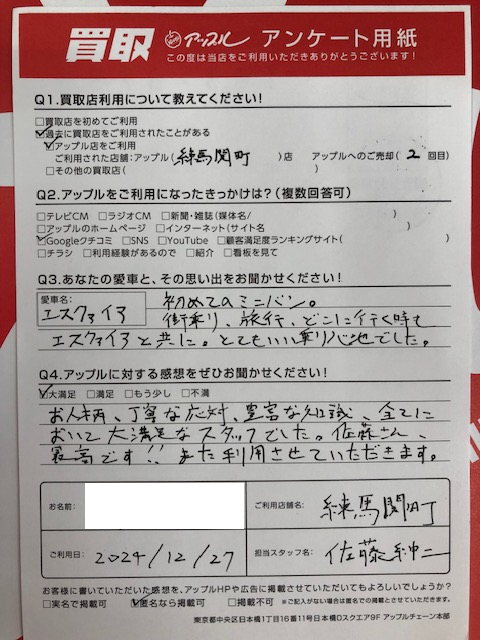 買取 アップル アンケート用紙
この度は当店をご利用いただきありがとうございます!
Q1.買取店利用について教えてください!
□買取店を初めてご利用
☑過去に買取店をご利用されたことがある
☑アップル店をご利用
ご利用された店舗:アップル( 練馬関町 )店 アップルへのご売却( 2 回目)
□その他の買取店( )
Q2.アップルをご利用になったきっかけは?(複数回答可)
□テレビCM □ラジオCM □新聞・雑誌(媒体名/ )
□アップルのホームページ □インターネット(サイト名 )
☑Googleクチコミ □SNS □YouTube □顧客満足度ランキングサイト( )
□チラシ □利用経験があるので □紹介 □看板を見て
Q3.あなたの愛車と、その思い出をお聞かせください!
愛車名: エスクァイア 初めてのミニバン。
街乗り、旅行、どこに行く時も
エスクァイアと共に。とてもいい乗り心地でした。
Q4.アップルに対する感想をぜひお聞かせください!
☑大満足 □満足 □もう少し □不満
お人柄、丁寧な応対、豊富な知識、全てに
おいて大満足なスタッフでした。佐藤さん、
最高です!! また利用させていただきます。
お名前: ご利用店舗名: 練馬関町
ご利用日: 2024/12/27 担当スタッフ名: 佐藤紳二
お客様に書いていただいた感想を、アップルHPや広告に掲載させていただいてもよろしいでしょうか?
□実名で掲載可 ☑匿名なら掲載可 □掲載不可 ※ご記入がない場合は匿名での掲載とさせていただきます。
東京都中央区日本橋1丁目16番11号日本橋Dスクエア9F アップルチェーン本部